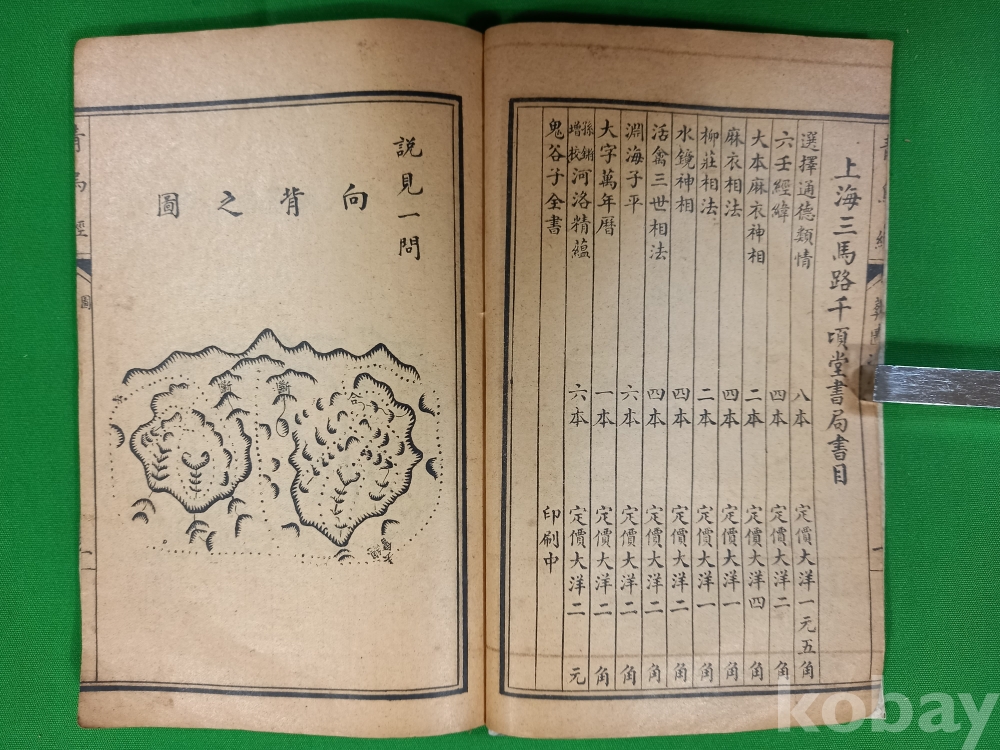 上海三馬路千頃堂書局書目
選擇通德類情 八本 定價大洋一元五角
六壬經緯 四本 定價大洋二角
大本麻衣神相 二本 定價大洋四角
麻衣相法 四本 定價大洋一角
柳莊相法 二本 定價大洋一角
水鏡神相 四本 定價大洋二角
活禽三世相法 四本 定價大洋二角
淵海子平 六本 定價大洋二角
大字萬年曆 一本 定價大洋二角
孫鏘增校河洛精蘊 六本 定價大洋二元
鬼谷子全書 印刷中
說見一問
向背之圖
青烏經
圖
一
kobay